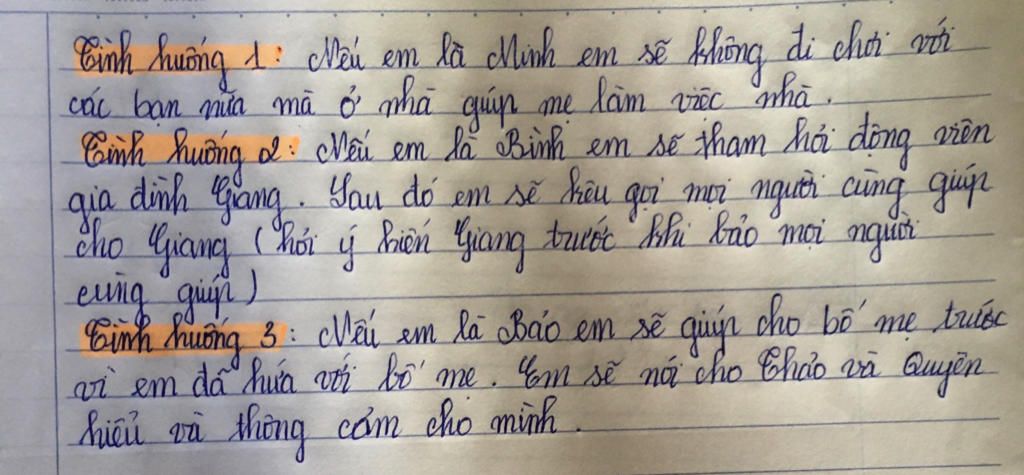 Tình huống 1: Nếu em là Minh em sẽ không đi chơi với
các bạn nữa mà ở nhà giúp mẹ làm việc nhà.
Tình huống 2: Nếu em là Bình em sẽ tham hỏi động viên
gia đình Giang. Sau đó em sẽ kêu gọi mọi người cùng giúp
cho Giang (hỏi ý kiến Giang trước khi bảo mọi người
cùng giúp)
Tình huống 3: Nếu em là Bảo em sẽ giúp cho bố mẹ trước
vì em đã hứa với bố mẹ. Em sẽ nói cho Thảo và Quyên
hiểu và thông cảm cho mình.